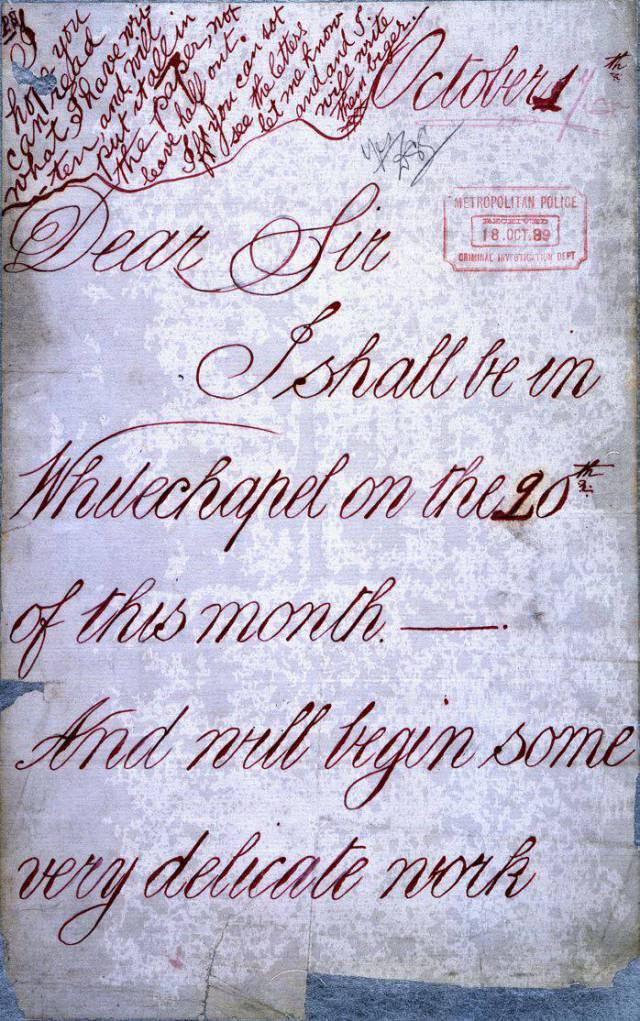 P.S
I
hope you
can read
what I have wri-
-ten and will
put it all in
the paper, not
leave half out.
If you can not
see the letters
let me know
and and I.
will write
them biger..
October 17th
METROPOLITAN POLICE
RECEIVED
18.OCT.89
CRIMINAL INVESTIGATION DEPT
Dear Sir
I shall be in
Whitechapel on the 20th
of this month. —.
And will begin some
very delicate work